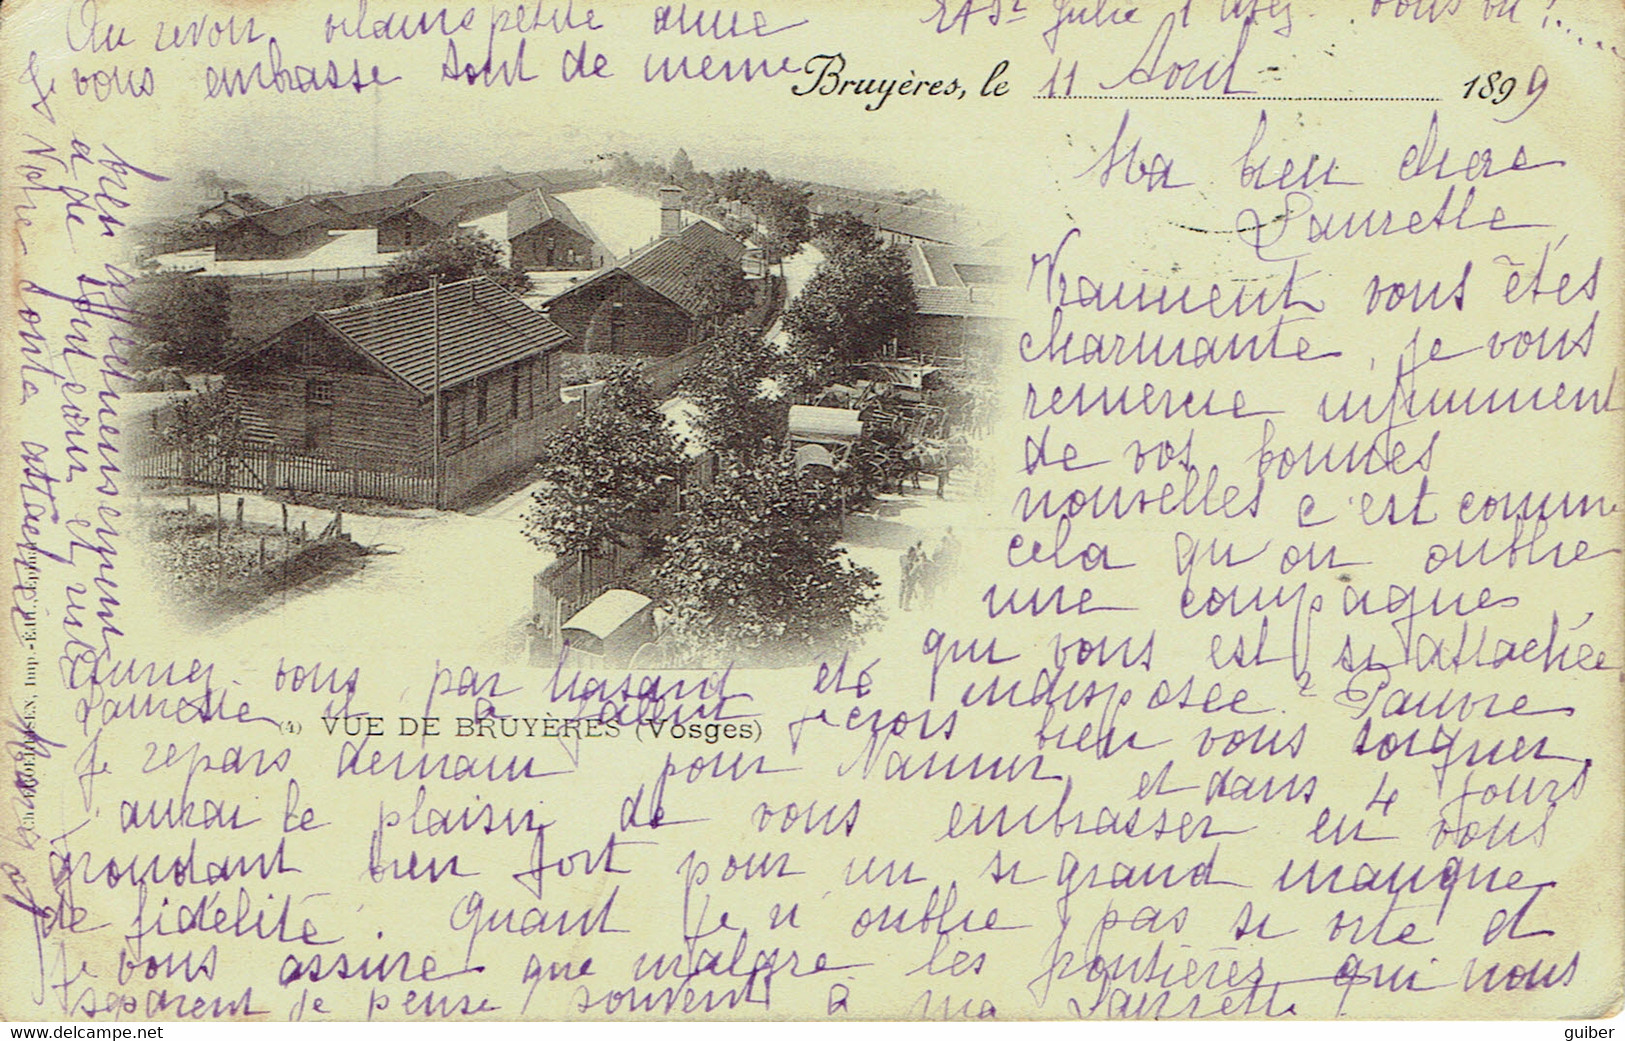 Bruyères, le 11 Aout 1899
Ma bien chere
Laurette
Vraiment vous êtes
charmante, je vous
remercie infiniment
de vos bonnes
nouvelles c'est comme
cela qu'on oublie
une compagnes
qui vous est si attachée
Auriez-vous par hasard été indisposée? Pauvre
Laurette il a fallut je crois bien vous soigner.
Je repars demain pour Namur et dans 4 jours
aurai le plaisir de vous embrasser en vous
grondant bien fort pour un si grand manque
de fidélité. Quant je n'oublie pas si vite et
je vous assure que malgre les frontières qui nous
separent je pense souvent à ma Laurette!
Au revoir vilaine petite amie
Je vous embrasse tout de meme
bien affectueusement
de tout cœur et reste
Votre toute attachée
Julie
vous vu?.....
(4) VUE DE BRUYÈRES (Vosges)
guiber